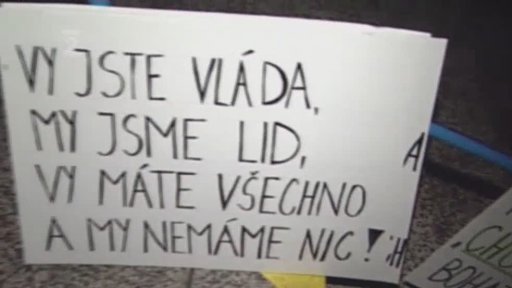 VY JSTE VLÁDA,
MY JSME LID,
VY MÁTE VŠECHNO
A MY NEMÁME NIC!
A